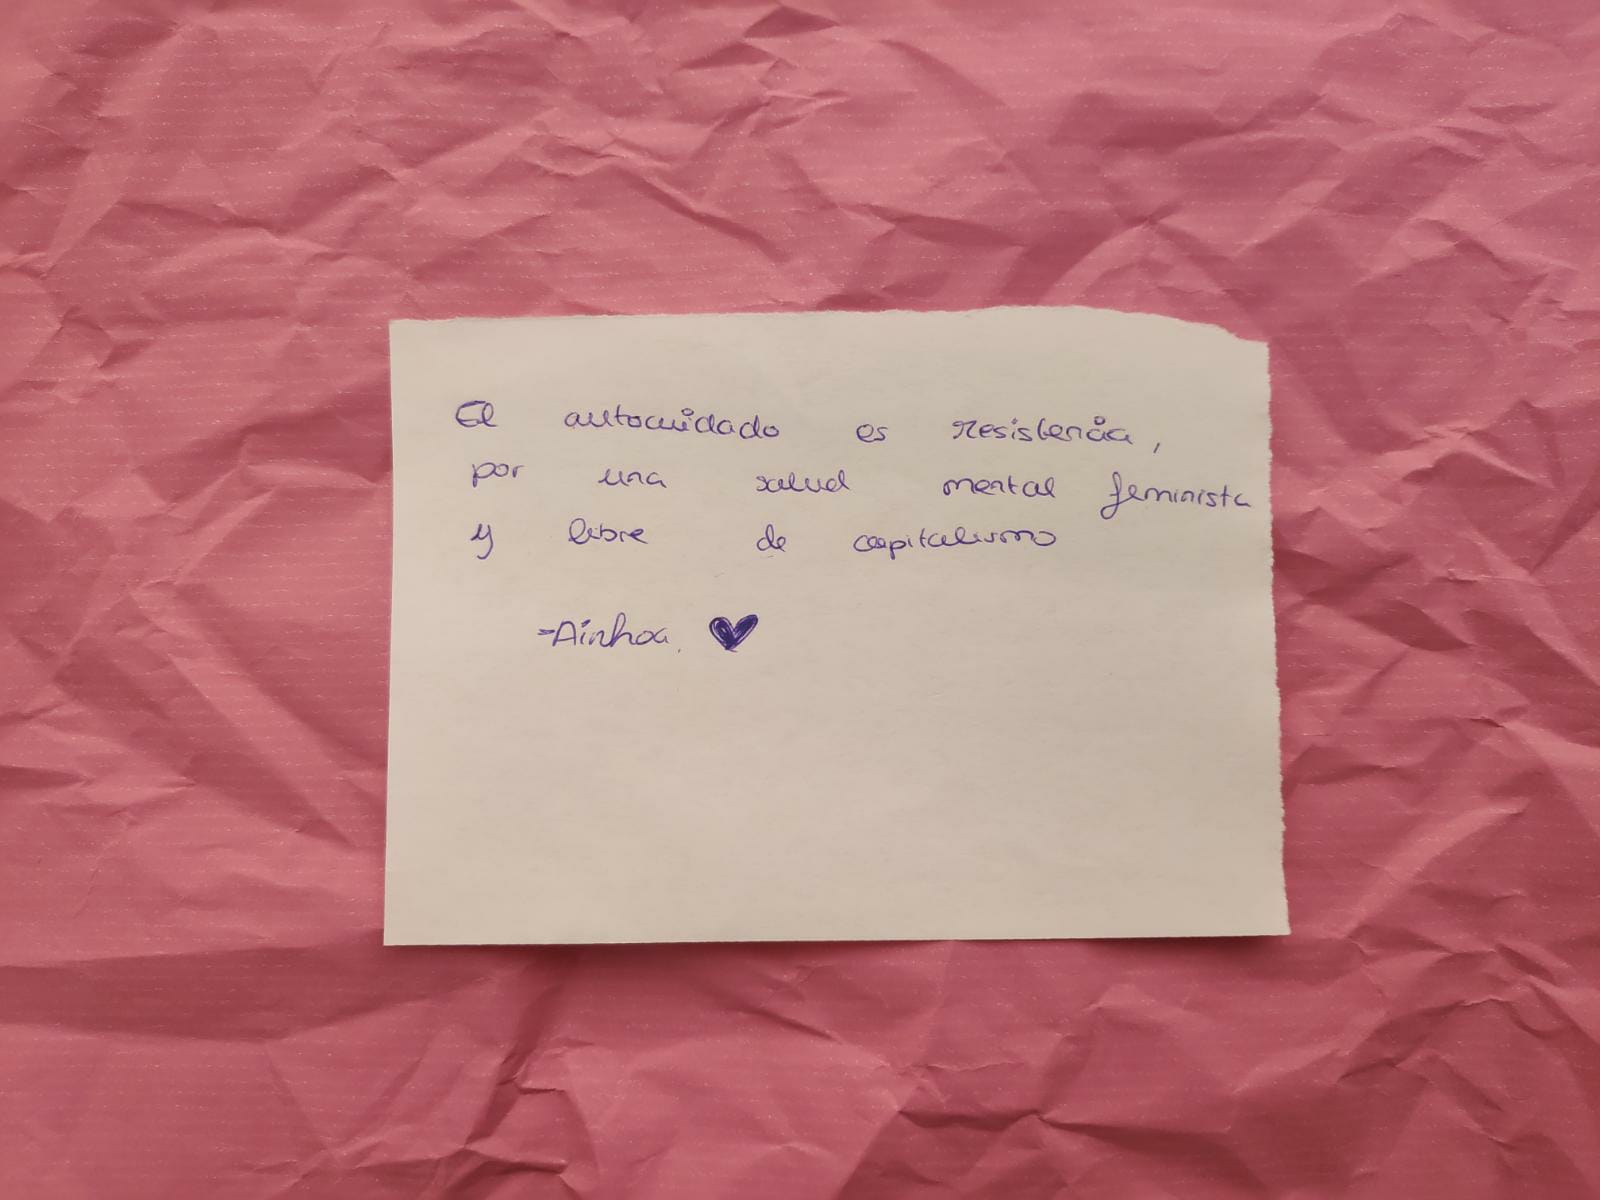 El autocuidado es resistencia,
por una salud mental feminista
y libre de capitalismo
-Ainhoa. ♥